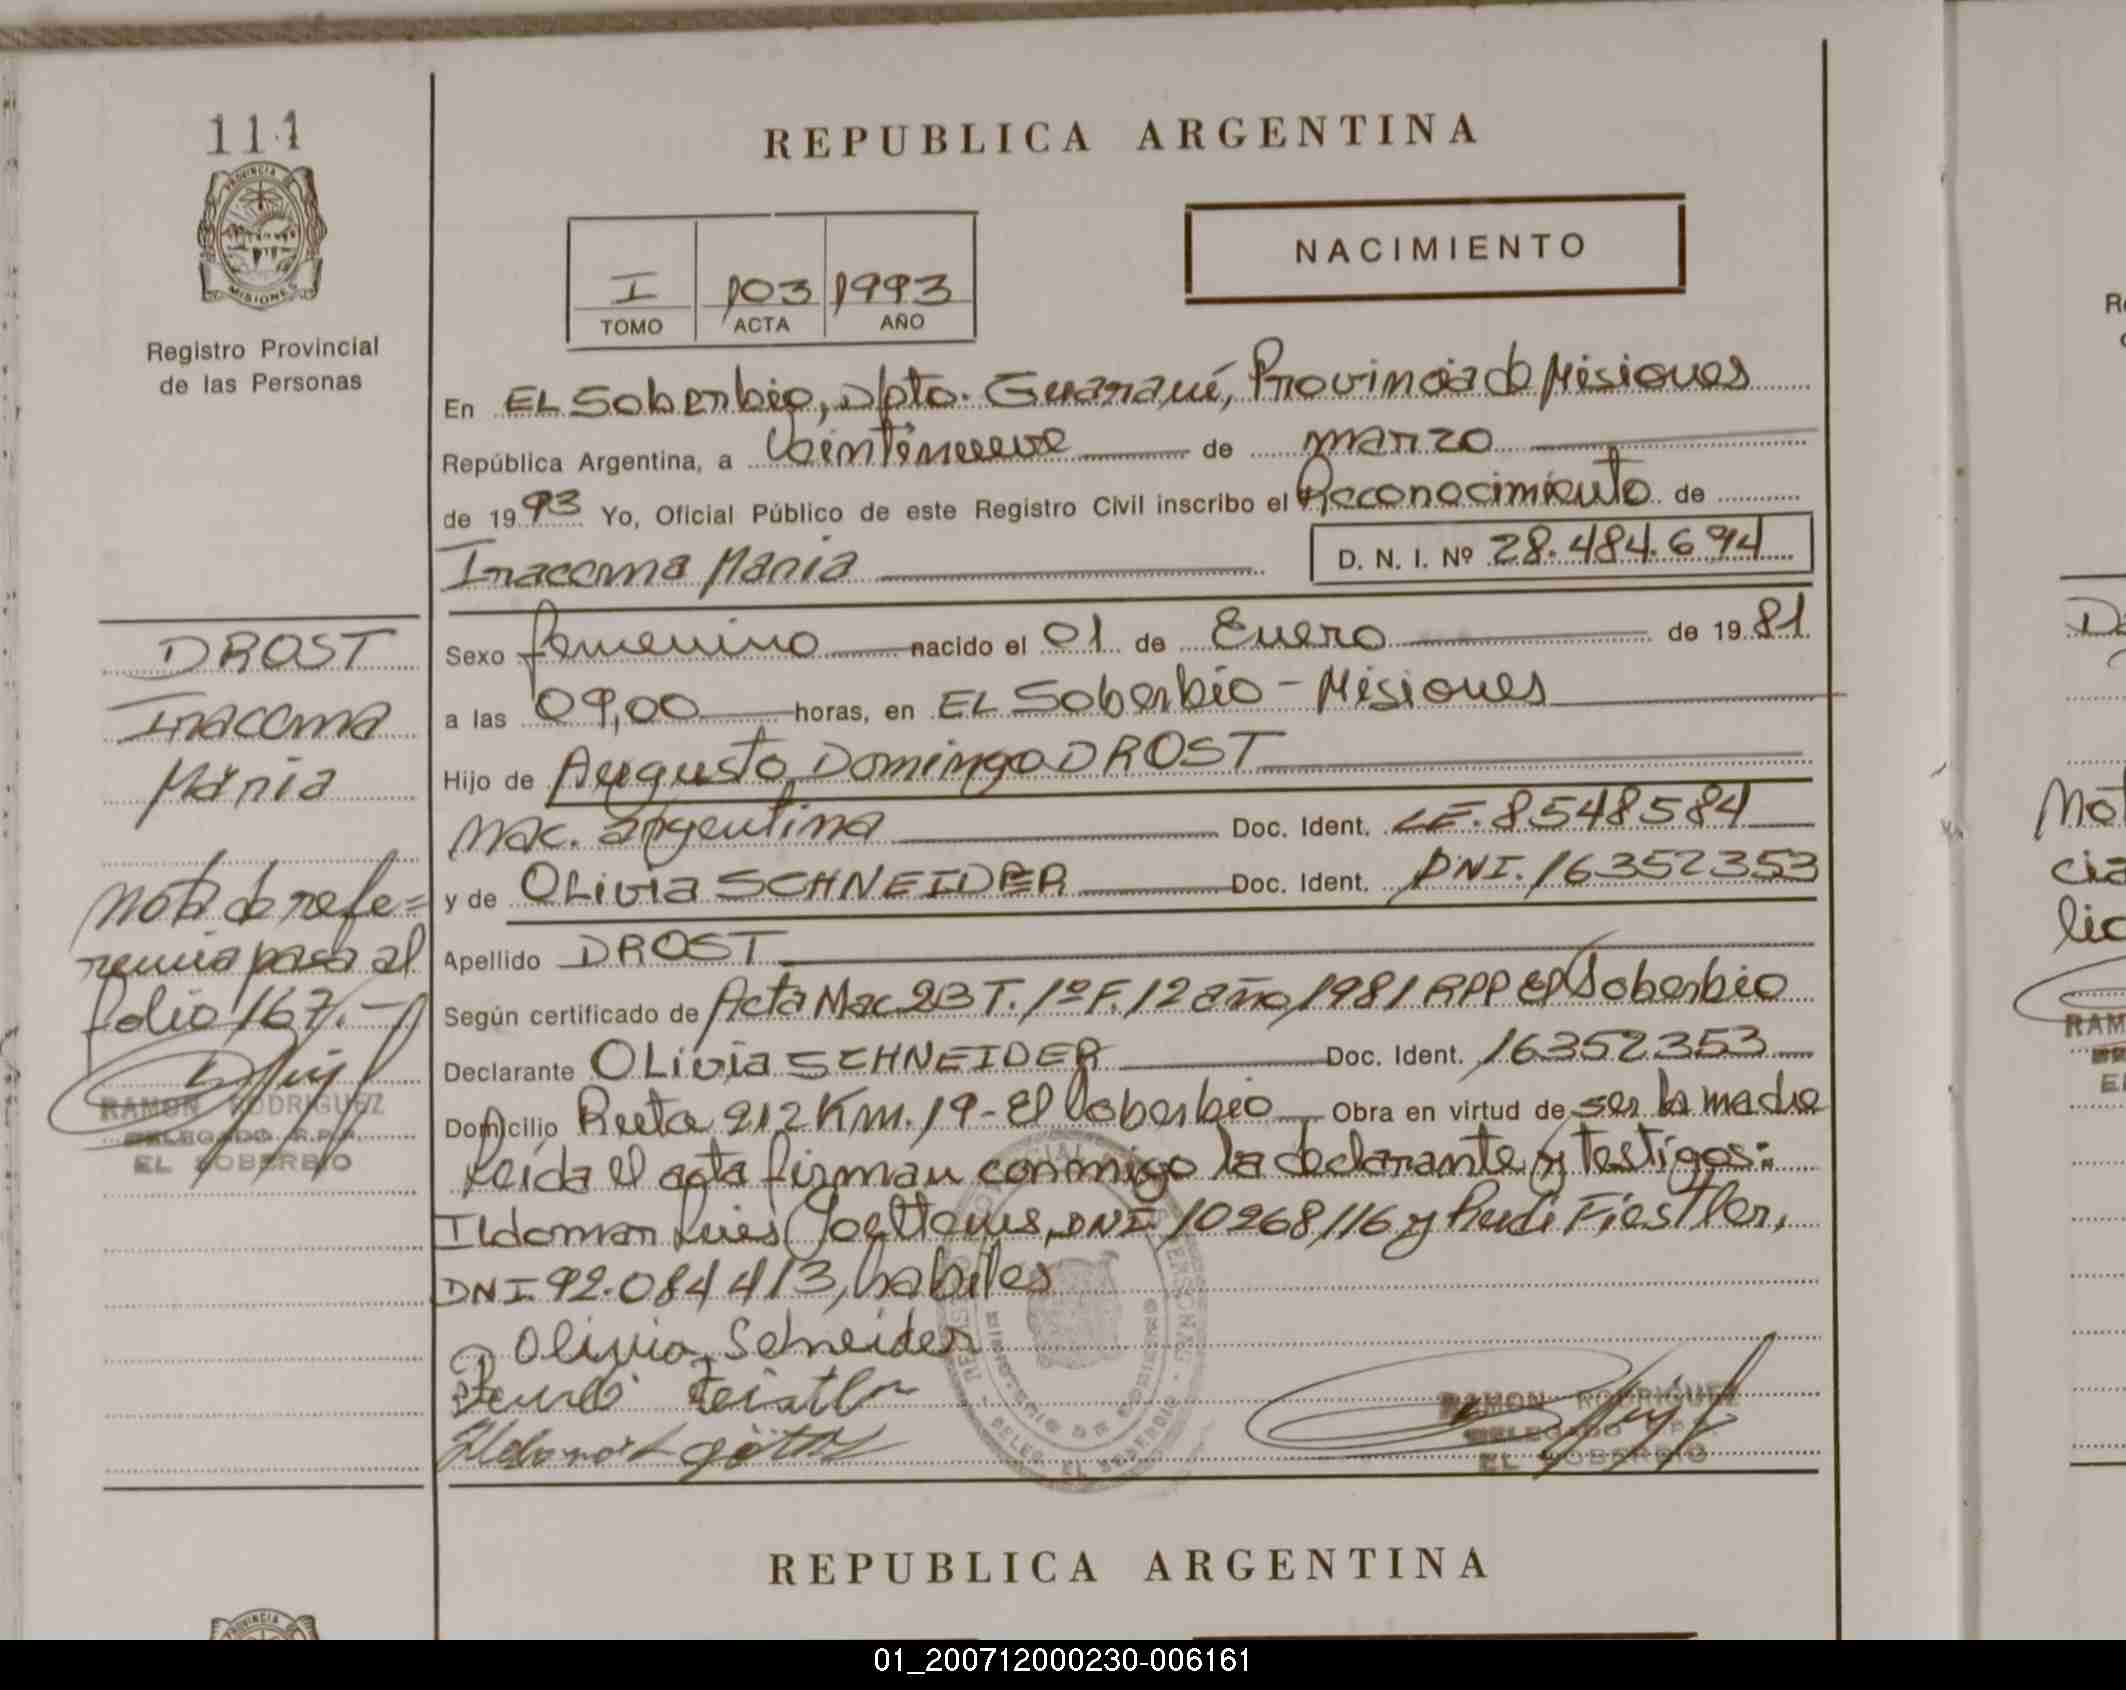 111
PROVINCIA
MISIONES
Registro Provincial
de las Personas
REPUBLICA ARGENTINA
NACIMIENTO
I 103 1993
TOMO ACTA AÑO
En EL Soberbio, Dpto. Guaraní, Provincia de Misiones
República Argentina, a Veintinueve de marzo
de 1993 Yo, Oficial Público de este Registro Civil inscribo el Reconocimiento de
Iracema Maria D. N. I. Nº 28.484.694
Sexo femenino nacido el 01 de Enero de 1981
a las 09,00 horas, en EL Soberbio - Misiones
Hijo de Augusto Domingo DROST
Nac. argentina Doc. Ident. LE. 8548584
y de OLivia SCHNEIDER Doc. Ident. DNI. 16352353
Apellido DROST
Según certificado de Acta Nac. 23 T. 1º F. 12 año 1981 RPP El Soberbio
Declarante OLivia SCHNEIDER Doc. Ident. 16352353
Domicilio Ruta 212 Km. 19 - El Soberbio Obra en virtud de ser la madre
Leida el acta firman conmigo la declarante y testigos:
Ildomar Luis DNI. 10268116 y Rudi Fiestler,
DNI 92.084413, habiles
Olivia Schneider
Rudi Feistler
RAMON RODRIGUEZ
DELEGADO R.P.P.
EL SOBERBIO
DROST
Iracema
Maria
Nota de refe=
rencia pasa al
folio 167.-
RAMON RODRIGUEZ
DELEGADO R.P.P.
EL SOBERBIO
REPUBLICA ARGENTINA
PROVINCIA
01_200712000230-006161